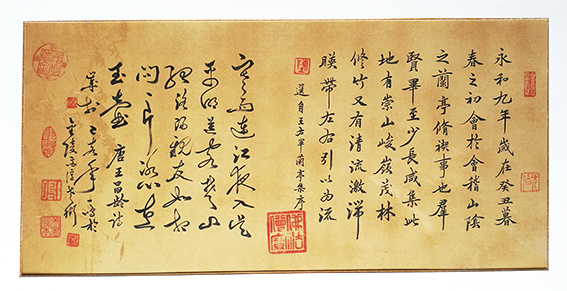 永和九年歲在癸丑暮
春之初會於會稽山陰
之蘭亭脩禊事也羣
賢畢至少長咸集此
地有崇山峻嶺茂林
修竹又有清流激湍
暎帶左右引以為流
選自王右軍蘭亭集序
寒雨連江夜入吳
平明送客楚山
孤洛陽親友如相
問一片冰心在
玉壺 唐王昌齡詩